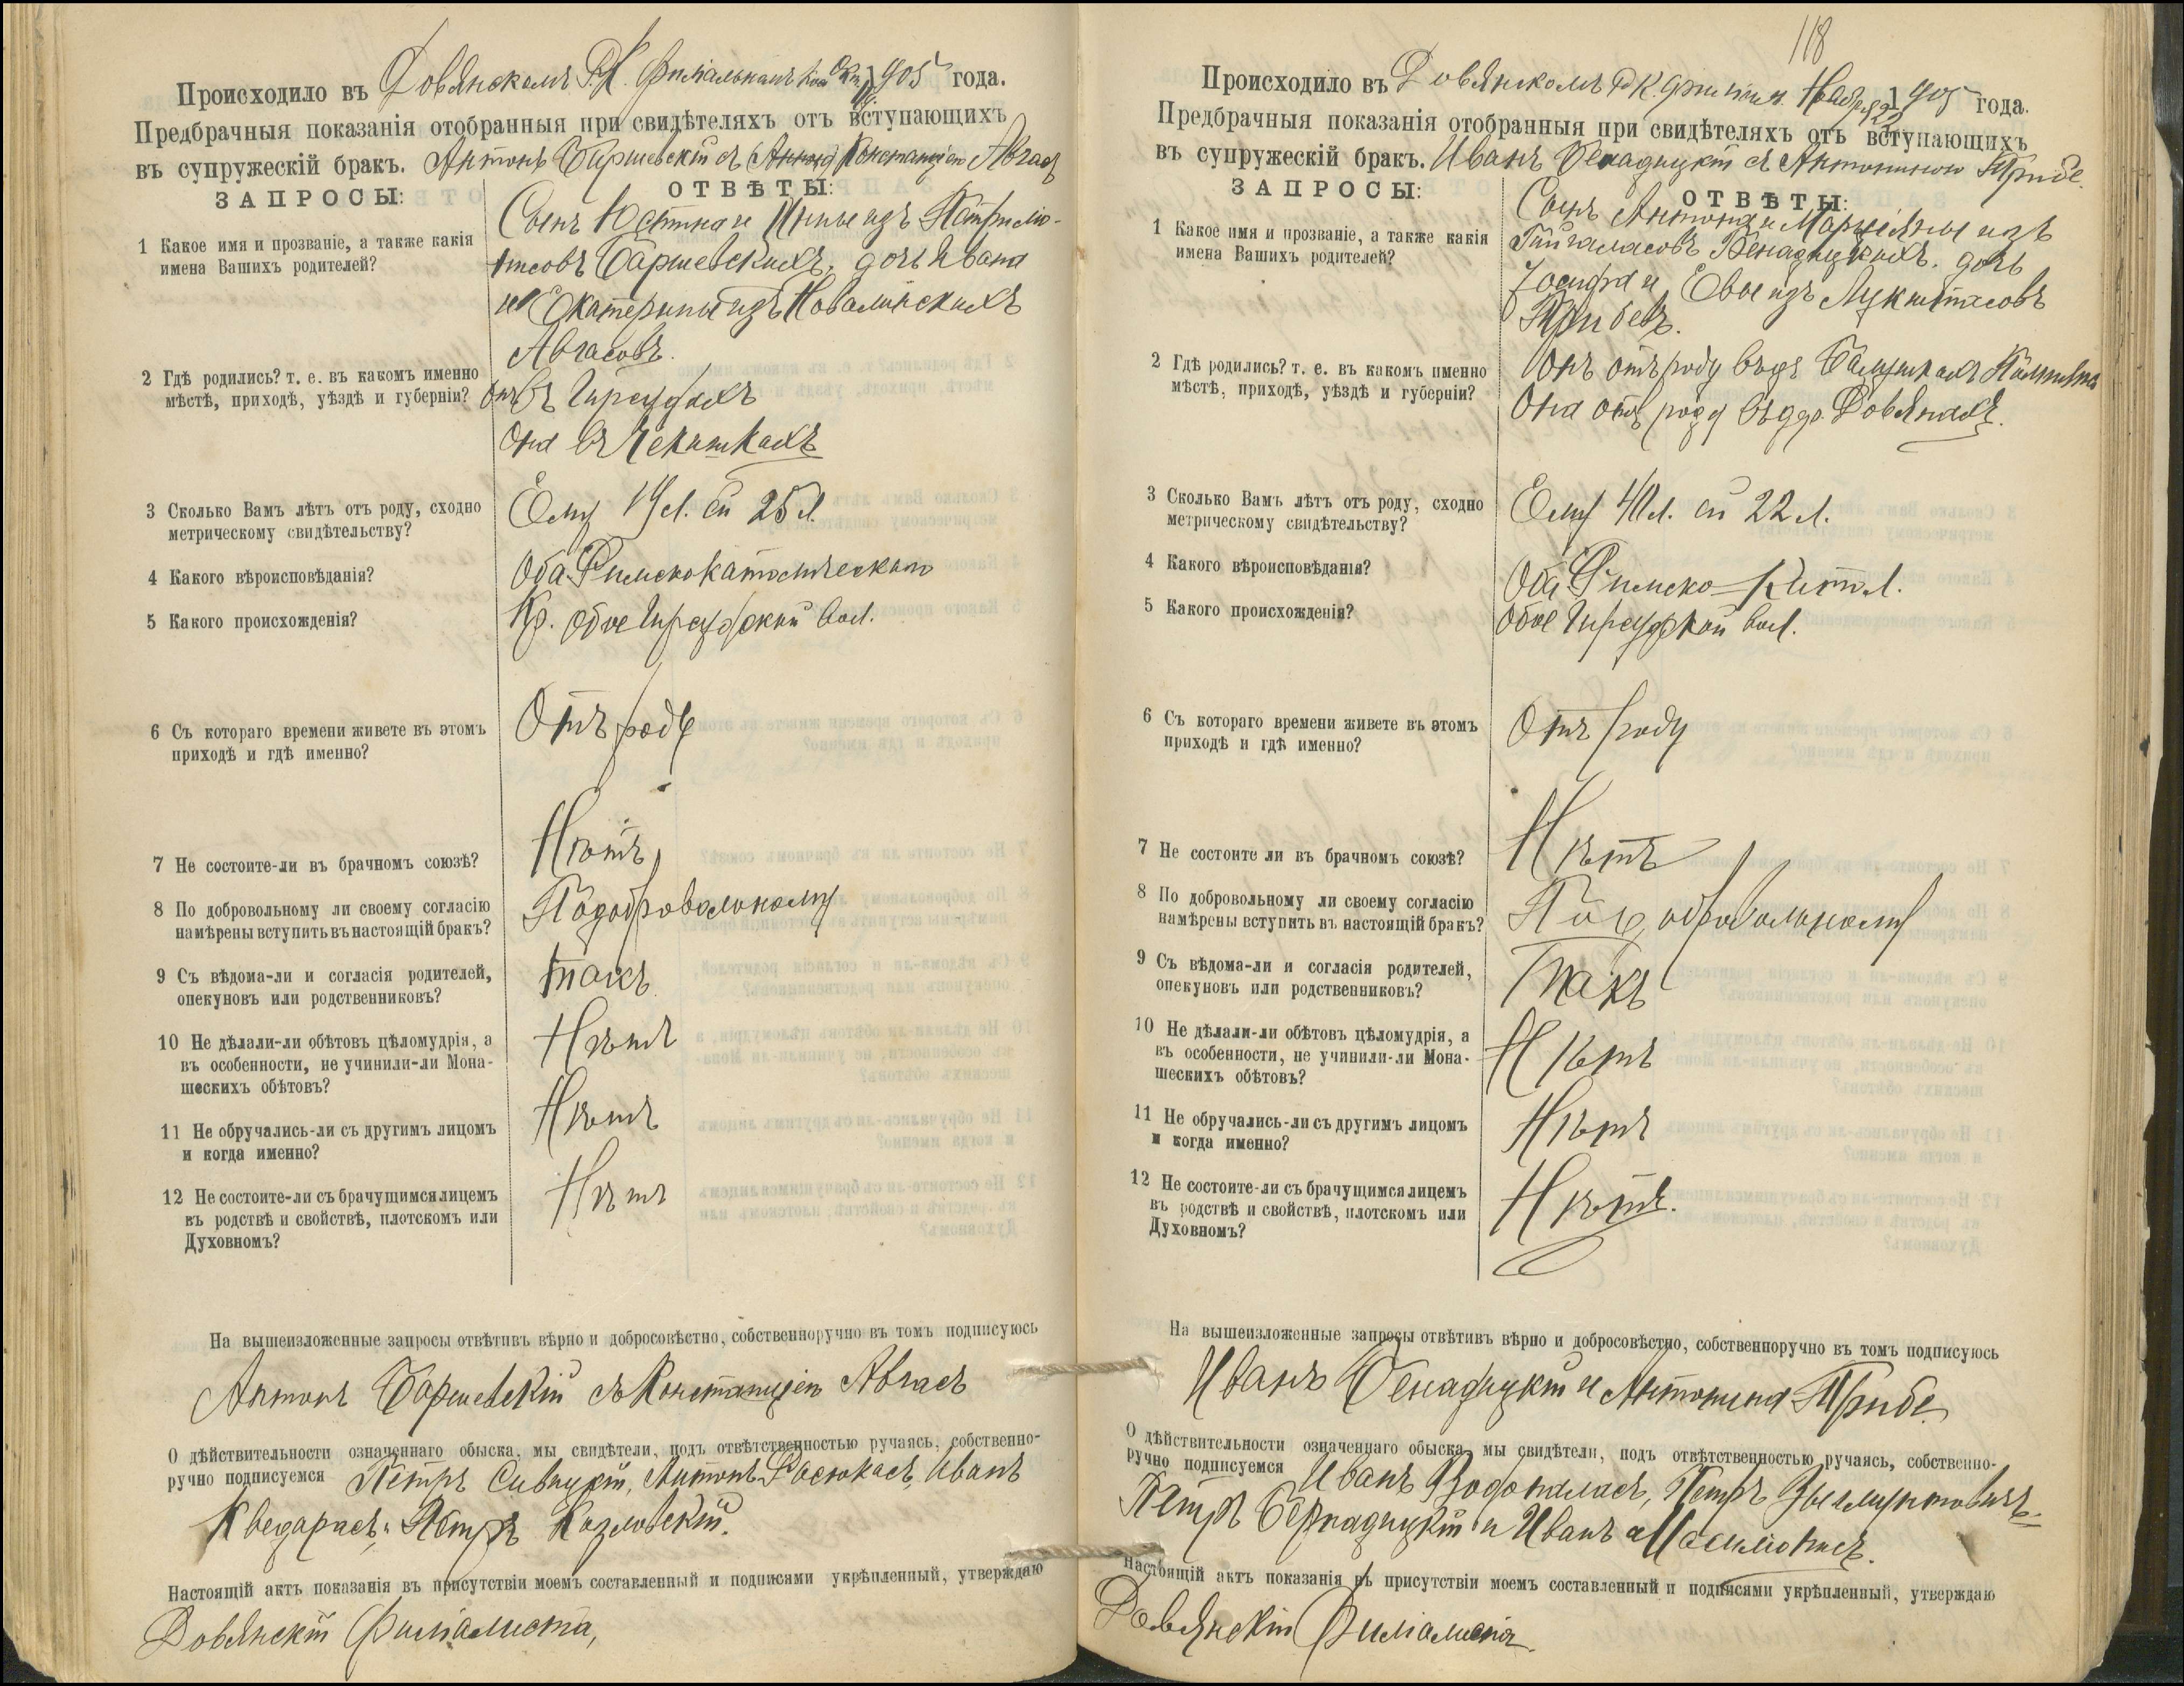 Происходило въ Довянскомъ Р.К. филіальномъ 1905 года.
Предбрачныя показанія отобранныя при свидѣтеляхъ отъ вступающихъ
въ супружескій бракъ. Антонъ Баршевскій съ Констанціею Авгасъ
ЗАПРОСЫ:
ОТВѢТЫ:
1 Какое имя и прозваніе, а также какія
имена Вашихъ родителей?
Сынъ Юстина и Анны изъ
Баршевскихъ, дочь Ивана
и Екатерины изъ Новалинскихъ
Авгасовъ.
2 Гдѣ родились? т. е. въ какомъ именно
мѣстѣ, приходѣ, уѣздѣ и губерніи?
Онъ въ
Она въ Чекишкахъ
3 Сколько Вамъ лѣтъ отъ роду, сходно
метрическому свидѣтельству?
Ему л. ей 25 л.
4 Какого вѣроисповѣданія?
Оба Римскокатолическаго
5 Какого происхожденія?
Кр. обое вол.
6 Съ котораго времени живете въ этомъ
приходѣ и гдѣ именно?
Отъ роду
7 Не состоите-ли въ брачномъ союзѣ?
Нѣтъ
8 По добровольному ли своему согласію
намѣрены вступить въ настоящій бракъ?
По добровольному
9 Съ вѣдома-ли и согласія родителей,
опекуновъ или родственниковъ?
Такъ
10 Не дѣлали-ли обѣтовъ цѣломудрія, а
въ особенности, не учинили-ли Мона-
шескихъ обѣтовъ?
Нѣтъ
11 Не обручались-ли съ другимъ лицомъ
и когда именно?
Нѣтъ
12 Не состоите-ли съ брачущимся лицемъ
въ родствѣ и свойствѣ, плотскомъ или
Духовномъ?
Нѣтъ
На вышеизложенные запросы отвѣтивъ вѣрно и добросовѣстно, собственноручно въ томъ подписуюсь
Антонъ Баршевскій съ Констанціею Авгасъ
О дѣйствительности означеннаго обыска, мы свидѣтели, подъ отвѣтственностью ручаясь, собственно-
ручно подписуемся Петръ Сивицкій, Антонъ Иванъ
Кведарасъ, Петръ Козловскій.
Настоящій актъ показанія въ присутствіи моемъ составленный и подписями укрѣпленный, утверждаю
Довянскій Филіалиста,
118
Происходило въ Довянскомъ Р.К. филіал. Ноября 1905 года.
Предбрачныя показанія отобранныя при свидѣтеляхъ отъ вступающихъ
въ супружескій бракъ. Иванъ Бенадицкій съ Антониною Грибе.
ЗАПРОСЫ:
ОТВѢТЫ:
1 Какое имя и прозваніе, а также какія
имена Вашихъ родителей?
Сынъ Антона и Марціяны изъ
Гайгаласовъ Бенадицкихъ, дочь
Іосифа и Евы изъ
Грибевъ.
2 Гдѣ родились? т. е. въ какомъ именно
мѣстѣ, приходѣ, уѣздѣ и губерніи?
Онъ отъ роду въ
Она отъ роду въ Довянахъ.
3 Сколько Вамъ лѣтъ отъ роду, сходно
метрическому свидѣтельству?
Ему 40 л. ей 22 л.
4 Какого вѣроисповѣданія?
Оба Римско-Катол.
5 Какого происхожденія?
Обое вол.
6 Съ котораго времени живете въ этомъ
приходѣ и гдѣ именно?
Отъ роду
7 Не состоите ли въ брачномъ союзѣ?
Нѣтъ
8 По добровольному ли своему согласію
намѣрены вступить въ настоящій бракъ?
По добровольному
9 Съ вѣдома-ли и согласія родителей,
опекуновъ или родственниковъ?
Такъ
10 Не дѣлали-ли обѣтовъ цѣломудрія, а
въ особенности, не учинили-ли Мона-
шескихъ обѣтовъ?
Нѣтъ
11 Не обручались-ли съ другимъ лицомъ
и когда именно?
Нѣтъ
12 Не состоите-ли съ брачущимся лицемъ
въ родствѣ и свойствѣ, плотскомъ или
Духовномъ?
Нѣтъ.
На вышеизложенные запросы отвѣтивъ вѣрно и добросовѣстно, собственноручно въ томъ подписуюсь
Иванъ Бенадицкій и Антонина Грибе
О дѣйствительности означеннаго обыска, мы свидѣтели, подъ отвѣтственностью ручаясь, собственно-
ручно подписуемся Иванъ Водопаласъ, Петръ
Петръ Бернадицкій и Иванъ
Настоящій актъ показанія въ присутствіи моемъ составленный и подписями укрѣпленный, утверждаю
Довянскій Филіалиста